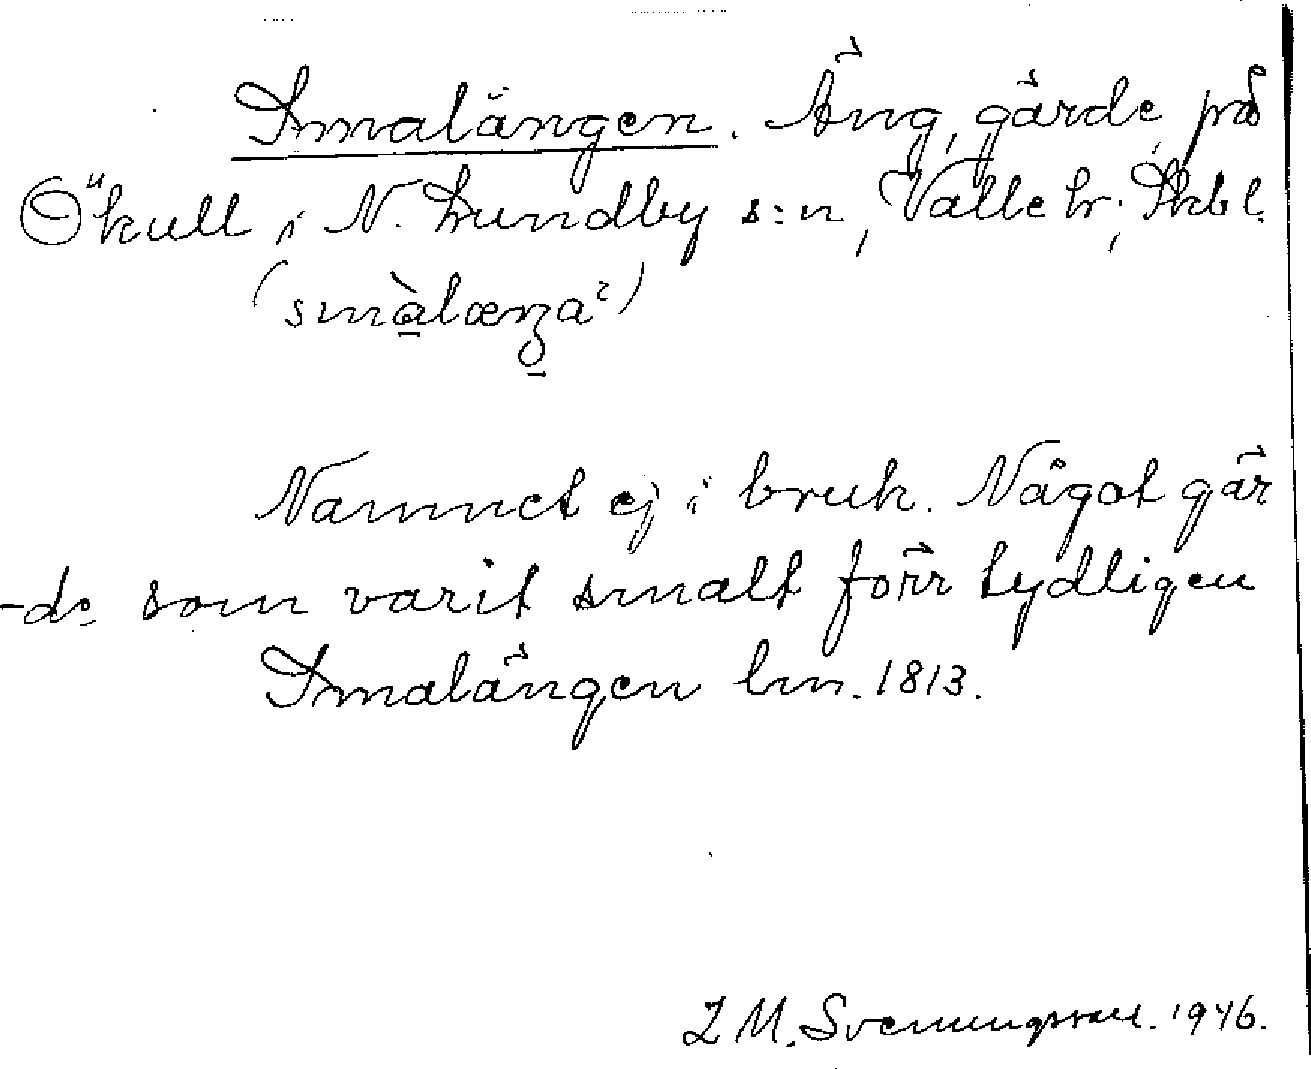 Smalängen. Äng, gärde, på
Ökull i N. Lundby s:n, Valle hr; Skbl.
(smàlæŋa²)
Namnet ej i bruk. Något gär
-de som varit smalt förr tydligen
Smalängen lm. 1813.
Z M. Svenungsson. 1946.